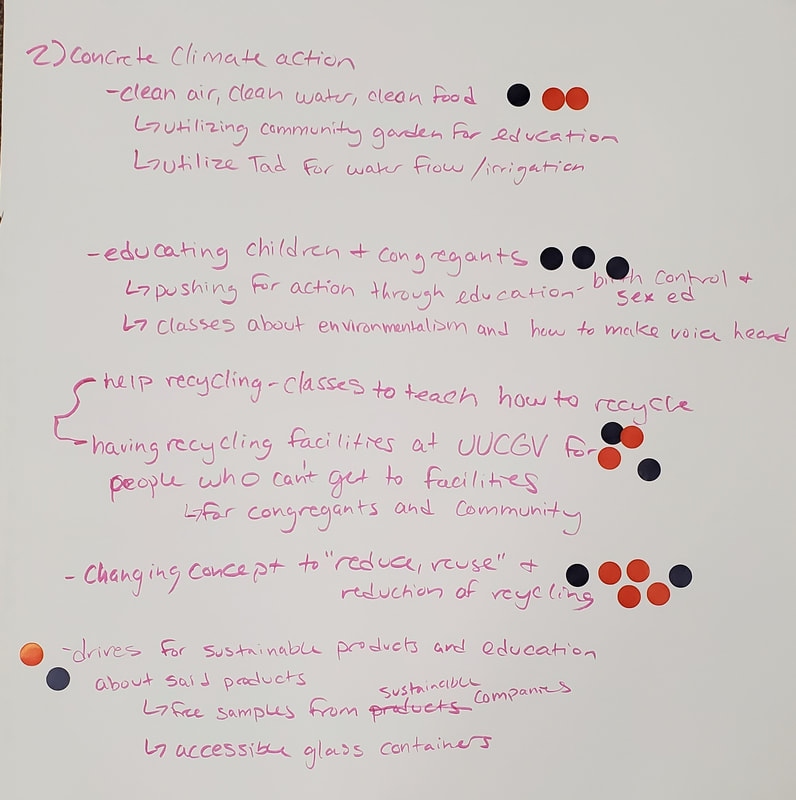 2) Concrete Climate action
- clean air, clean water, clean food
↳ utilizing community garden for education
↳ utilize Tad for water flow / irrigation
- educating children + congregants
↳ pushing for action through education - birth control +
sex ed
↳ classes about environmentalism and how to make voice heard
- help recycling - classes to teach how to recycle
- having recycling facilities at UUCGV for
people who can't get to facilities
↳ for congregants and community
- changing concept to "reduce, reuse" +
reduction of recycling
- drives for sustainable products and education
about said products
sustainable
↳ free samples from products companies
↳ accessible glass containers